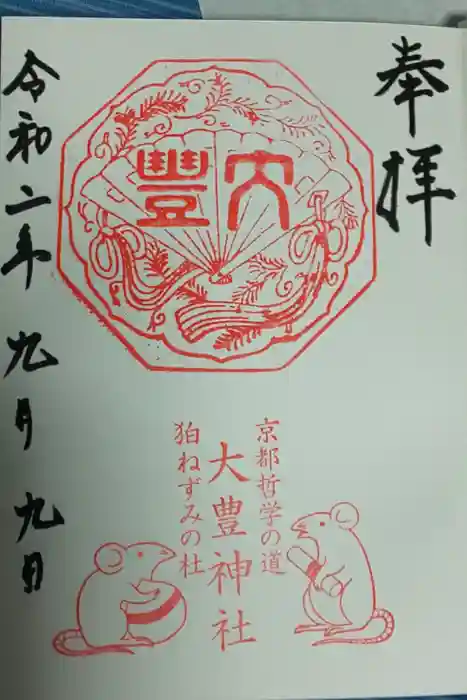 奉拝
大豊
京都哲学の道
大豊神社
狛ねずみの杜
令和二年九月九日